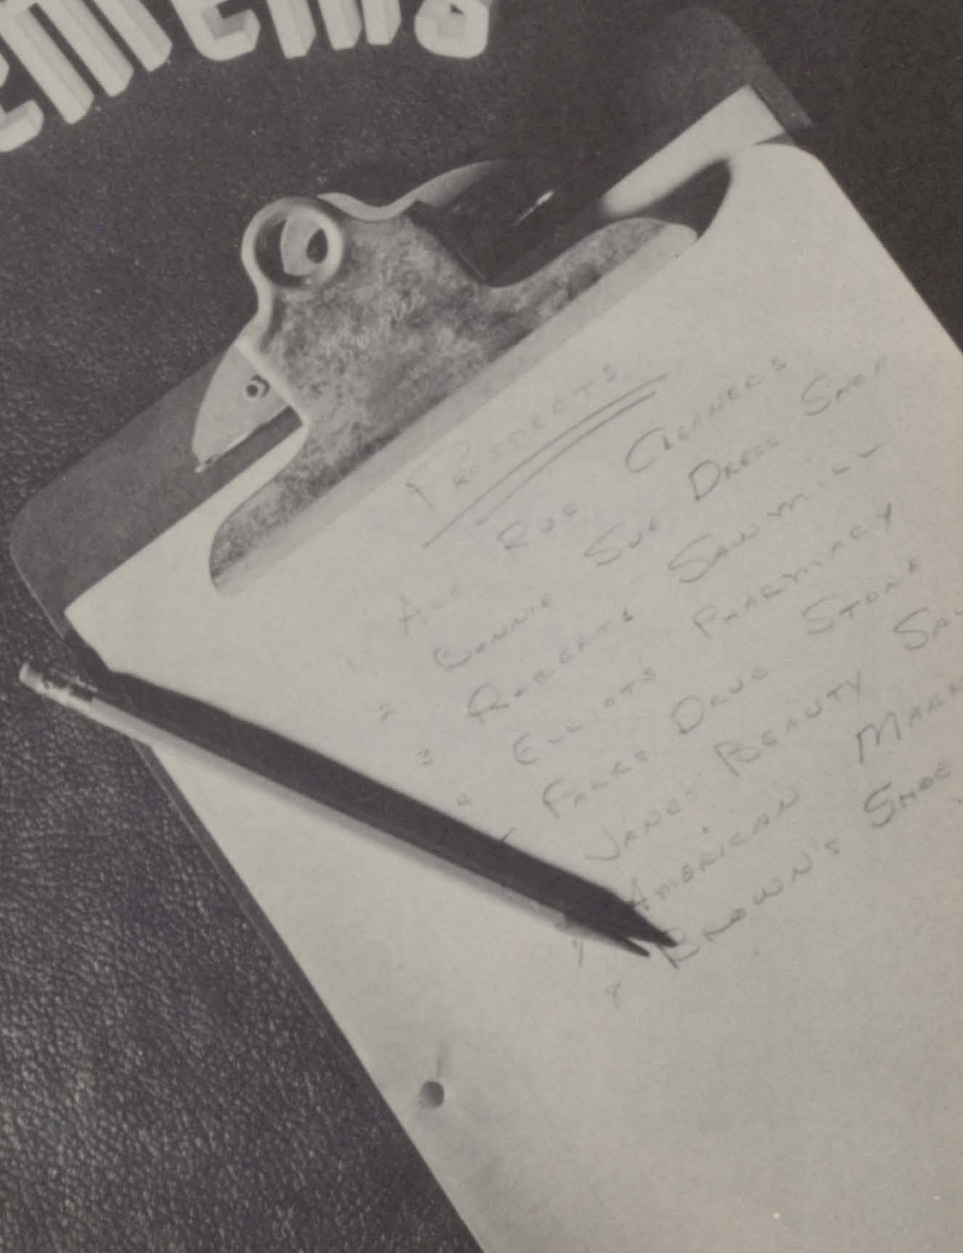 ements
PROSPECTS
1 ACE RUG CLEANERS
2 BONNIE SUE DRESS SHOP
3 ROBERTS SAWMILL
4 ELLIOTS PHARMACY
FAKE DRUG STORE
JANES BEAUTY SAL
7 AMERICAN MARK
8 BROWN'S SHOE